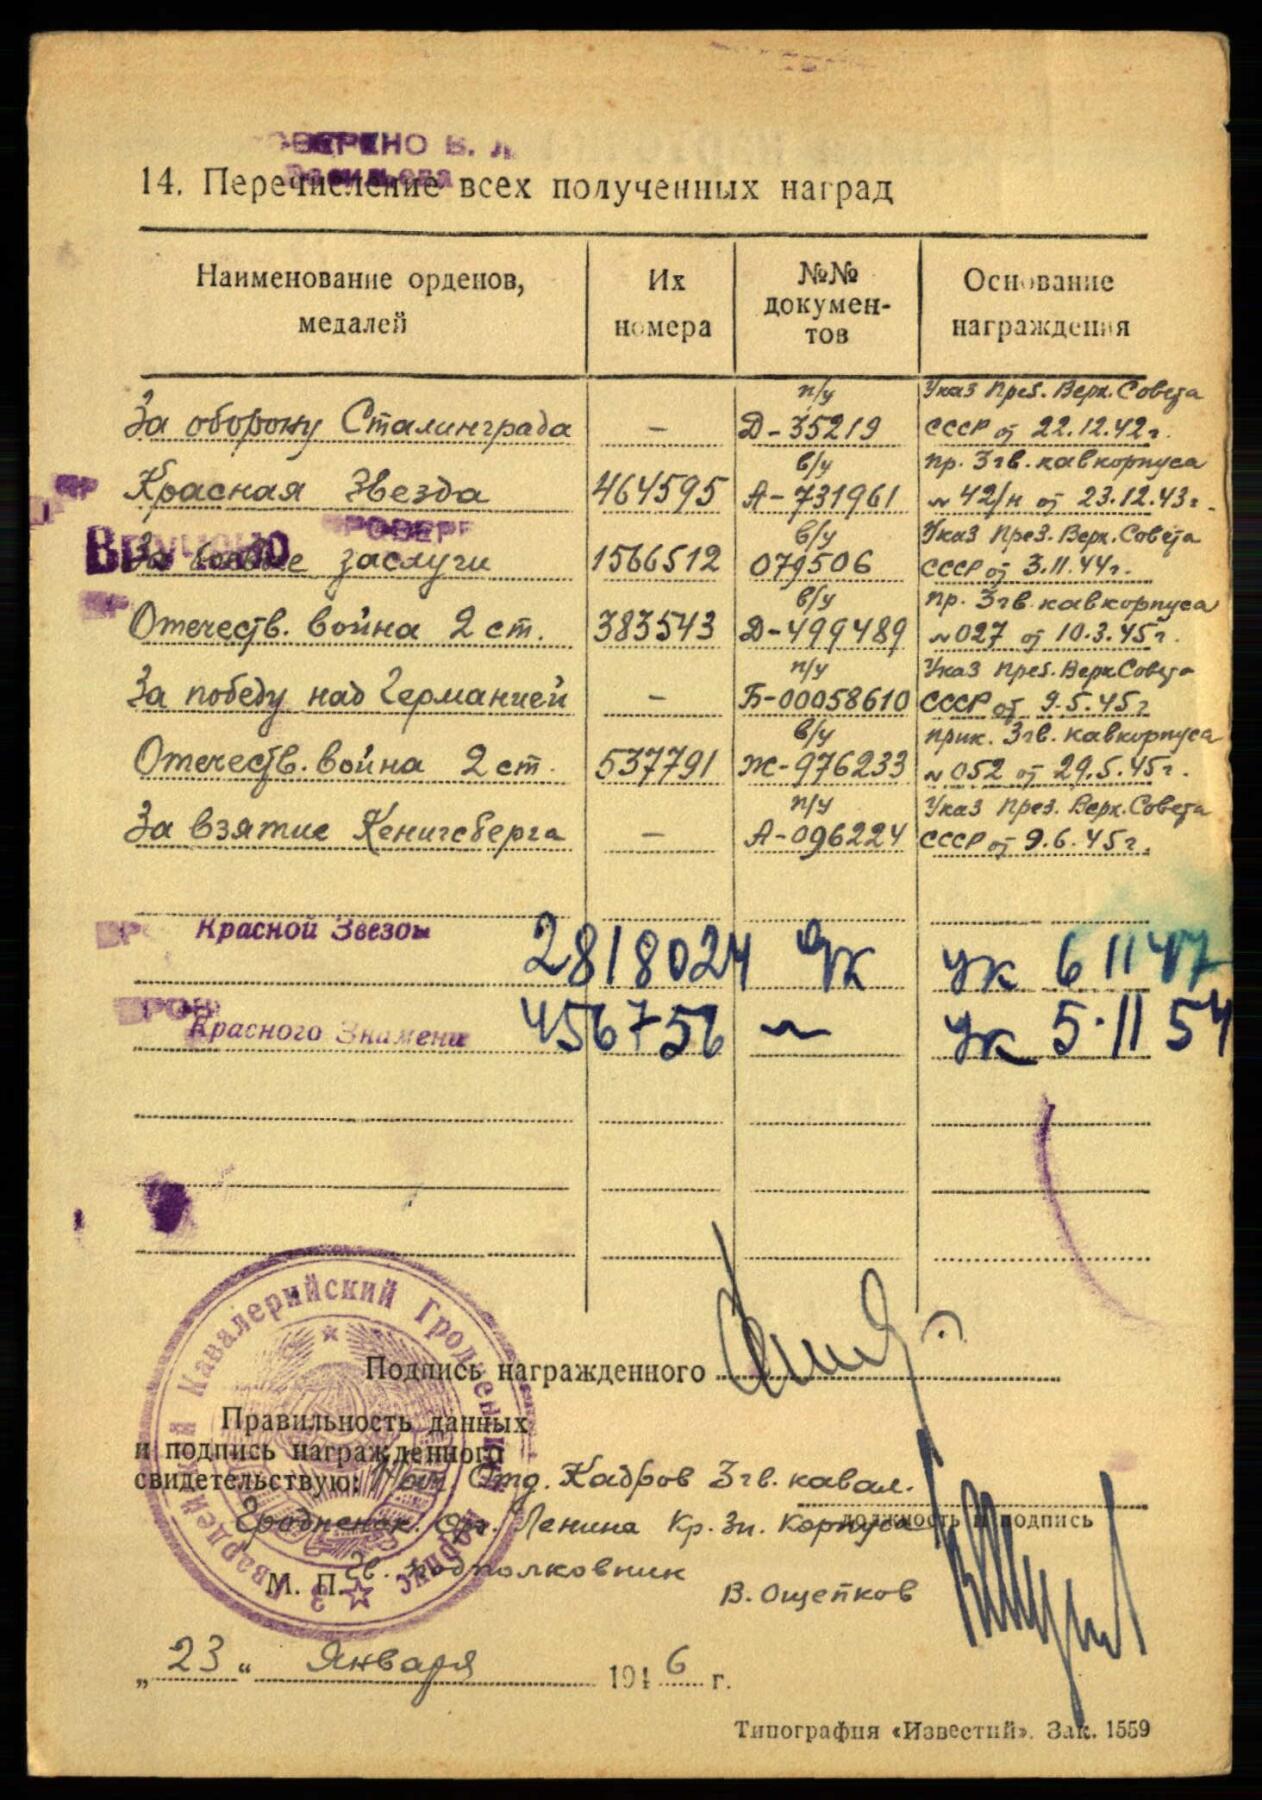 14. Перечисление всех полученных наград
Наименование орденов, медалей
Их номера
№№ документов
Основание награждения
За оборону Сталинграда — п/у Д-35219 Указ През. Верх. Совета СССР от 22.12.42г.
Красная Звезда 464595 в/у А-731961 пр. 3 гв. кавкорпуса № 42/н от 23.12.43г.
Вручено
За боевые заслуги 1566512 в/у 079506 Указ През. Верх. Совета СССР от 3.11.44г.
Отечеств. война 2 ст. 383543 в/у Д-499489 пр. 3 гв. кавкорпуса № 027 от 10.3.45г.
За победу над Германией — п/у Б-00058610 Указ През. Верх Совета СССР от 9.5.45г
Отечеств. война 2 ст. 537791 в/у Ж-976233 прик. 3 гв. кавкорпуса № 052 от 29.5.45г.
За взятие Кенигсберга — п/у А-096224 Указ През. Верх. Совета СССР от 9.6.45г.
Красной Звезды 2818024 ук 6 11 47
Красного Знамени 456756 ~ ук 5.11 54
Подпись награжденного
Правильность данных
и подпись награжденного
свидетельствую: Нач. Отд. Кадров 3 гв. кавал.
Гродненск. орд. Ленина Кр. Зн. Корпуса
должность и подпись
М. П. гв. подполковник
В. Ощепков
„23“ Января 1946 г.
Типография «Известий». Зак. 1559